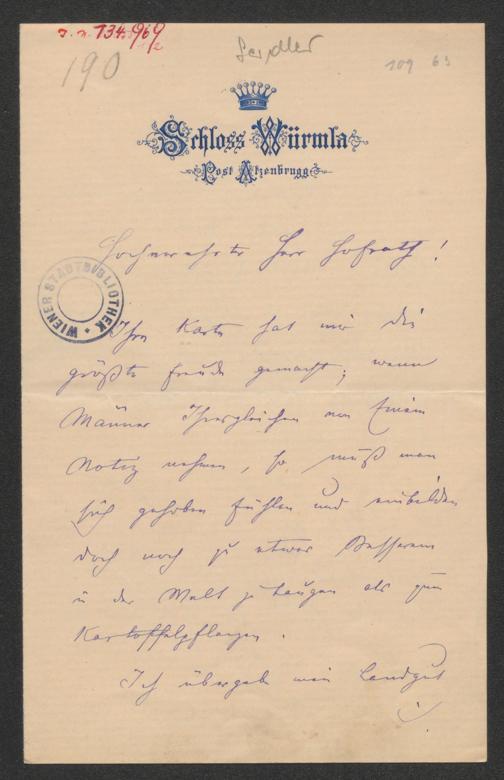 J. N. 134.969
190
109 63
Schloss Würmla
Post Atzenbrugg
Hochverehrter Herr Hofrath!
WIENER STADTBIBLIOTHEK
Ihre Karte hat mir die
größte Freude gemacht; wenn
Männer Ihresgleichen von Einem
Notiz nehmen, so muß man
sich gehoben fühlen und einbilden
doch noch zu etwas Besserem
in der Welt zu taugen als zum
Kartoffelpflanzen.
Ich übergebe mein Landgut